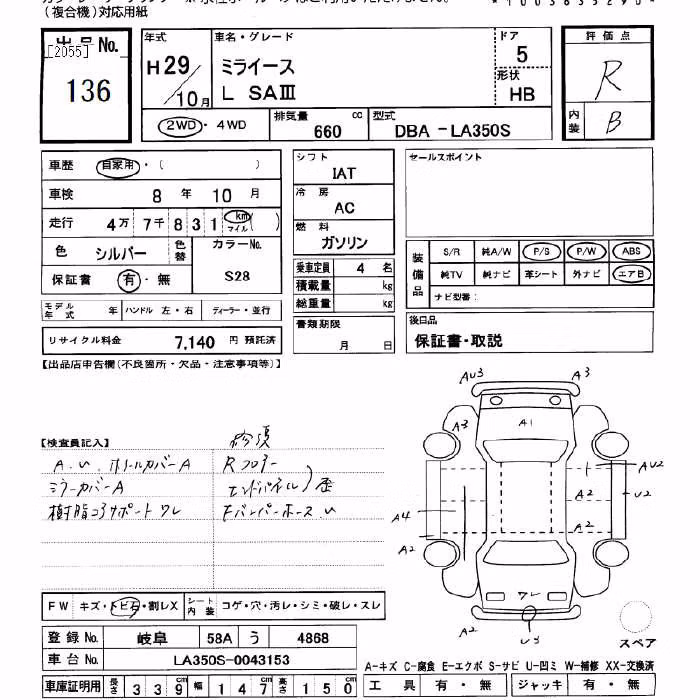 (複合機)対応用紙
出品No. 年式 車名・グレード ドア 評価点
[2055]
136 H29/10月 ミライース 5 R
L SAⅢ 形状 HB 内装 B
2WD・4WD 排気量 660 cc 型式 DBA -LA350S
車歴 自家用・( )
車検 8 年 10 月
走行 4万 7千 8 3 1 km マイル ( )
色 シルバー 色替 カラーNo. S28
保証書 有・無
シフト IAT
冷房 AC
燃料 ガソリン
乗車定員 4 名
積載量 kg
総重量 kg
セールスポイント
装備品 S/R 純A/W P/S P/W ABS
純TV 純ナビ 革シート 外ナビ エアB
ナビ型番:
モデル年式 年 ハンドル 左・右 ディーラー・並行
リサイクル料金 7,140 円 預託済
書類期限 月 日
後日品
保証書・取説
【出品店申告欄(不良箇所・欠品・注意事項等)】
【検査員記入】 修復
A.U. ホイールカバーA Rフロアー
ミラーカバーA エンドパネル 歪
樹脂コアサポートワレ FバンパーホースU
AU3 A3
A3 A1
AU2
A2 U2
A4 A2
A2
ワレ
A2 U3
スペア
FW キズ・トビ石・割レX シート内装 コゲ・穴・汚レ・シミ・破レ・スレ
登録No. 岐阜 58A う 4868
車台No. LA350S-0043153
車庫証明用 長さ 3 3 9 cm 幅 1 4 7 cm 高さ 1 5 0 cm
A-キズ C-腐食 E-エクボ S-サビ U-凹ミ W-補修 XX-交換済
工具 有・無 ジャッキ 有・無